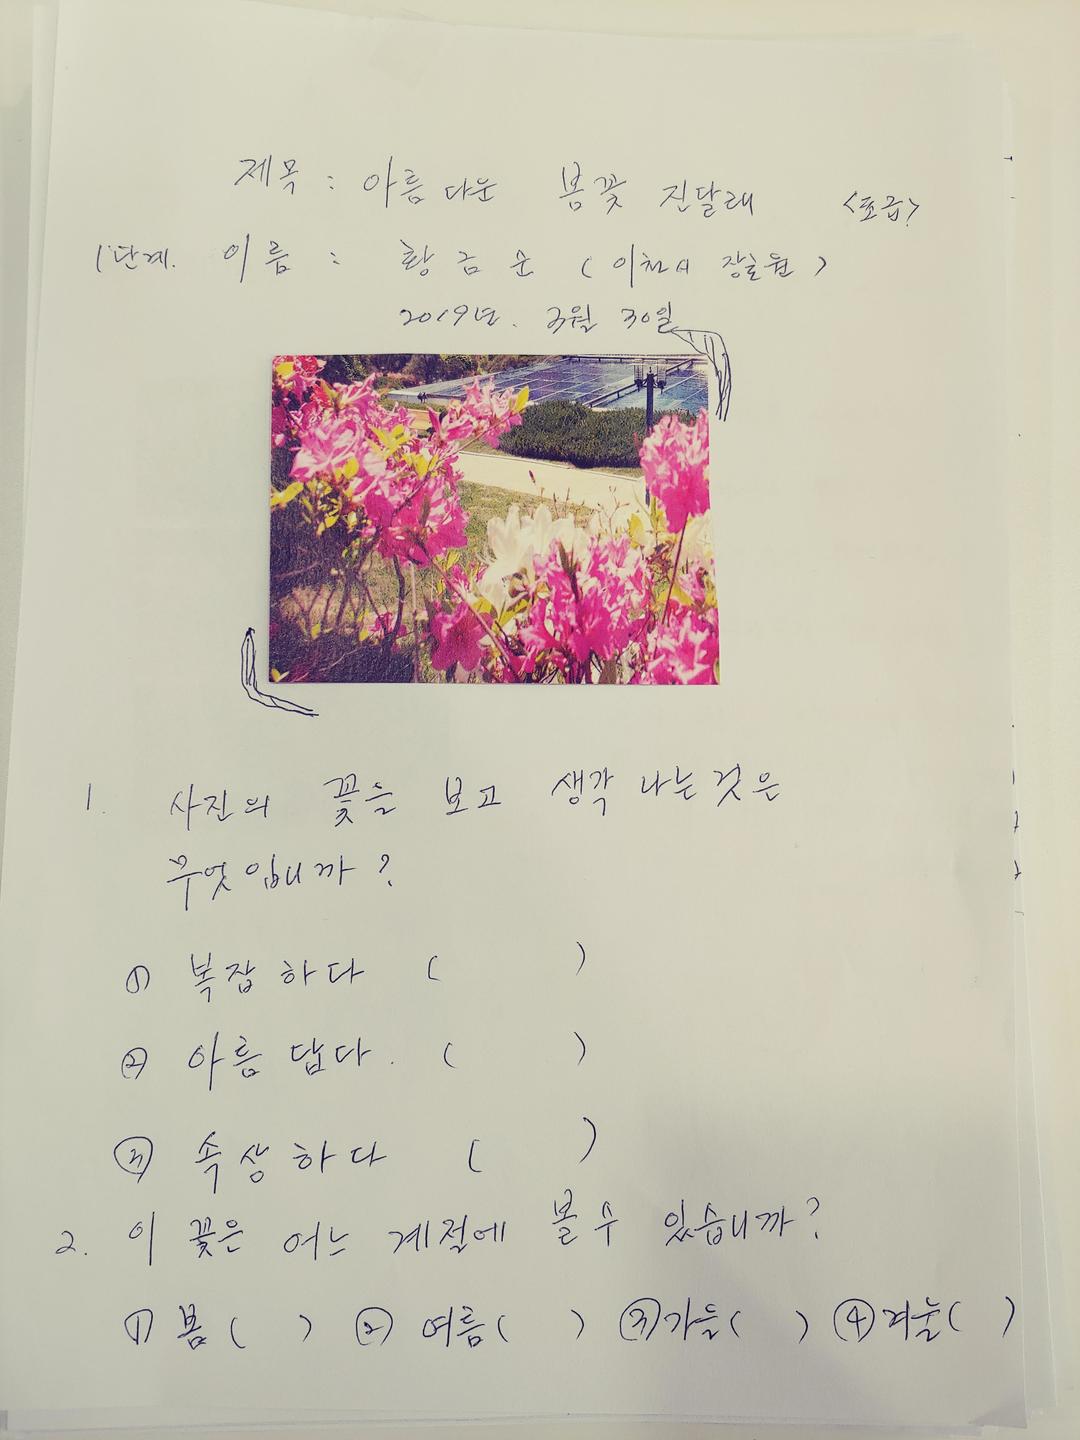 제목 : 아름다운 봄꽃 진달래 <초급>
1단계. 이름 : 황금순 (이천시 장호원)
2019년. 3월 30일
1. 사진의 꽃을 보고 생각나는것은
무엇입니까?
① 복잡하다 ( )
② 아름답다. ( )
③ 속상하다 ( )
2. 이 꽃은 어느 계절에 볼 수 있습니까?
① 봄 ( ) ② 여름 ( ) ③ 가을 ( ) ④ 겨울 ( )